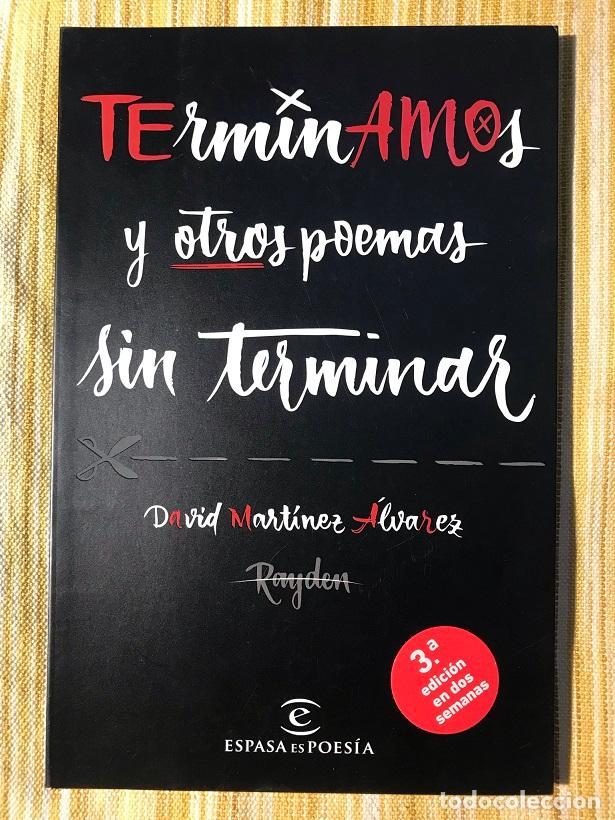 TErminAMOs
y otros poemas
sin terminar
David Martínez Álvarez
Rayden
3.ª
edición
en dos
semanas
e
ESPASA ES POESÍA
todocoleccion